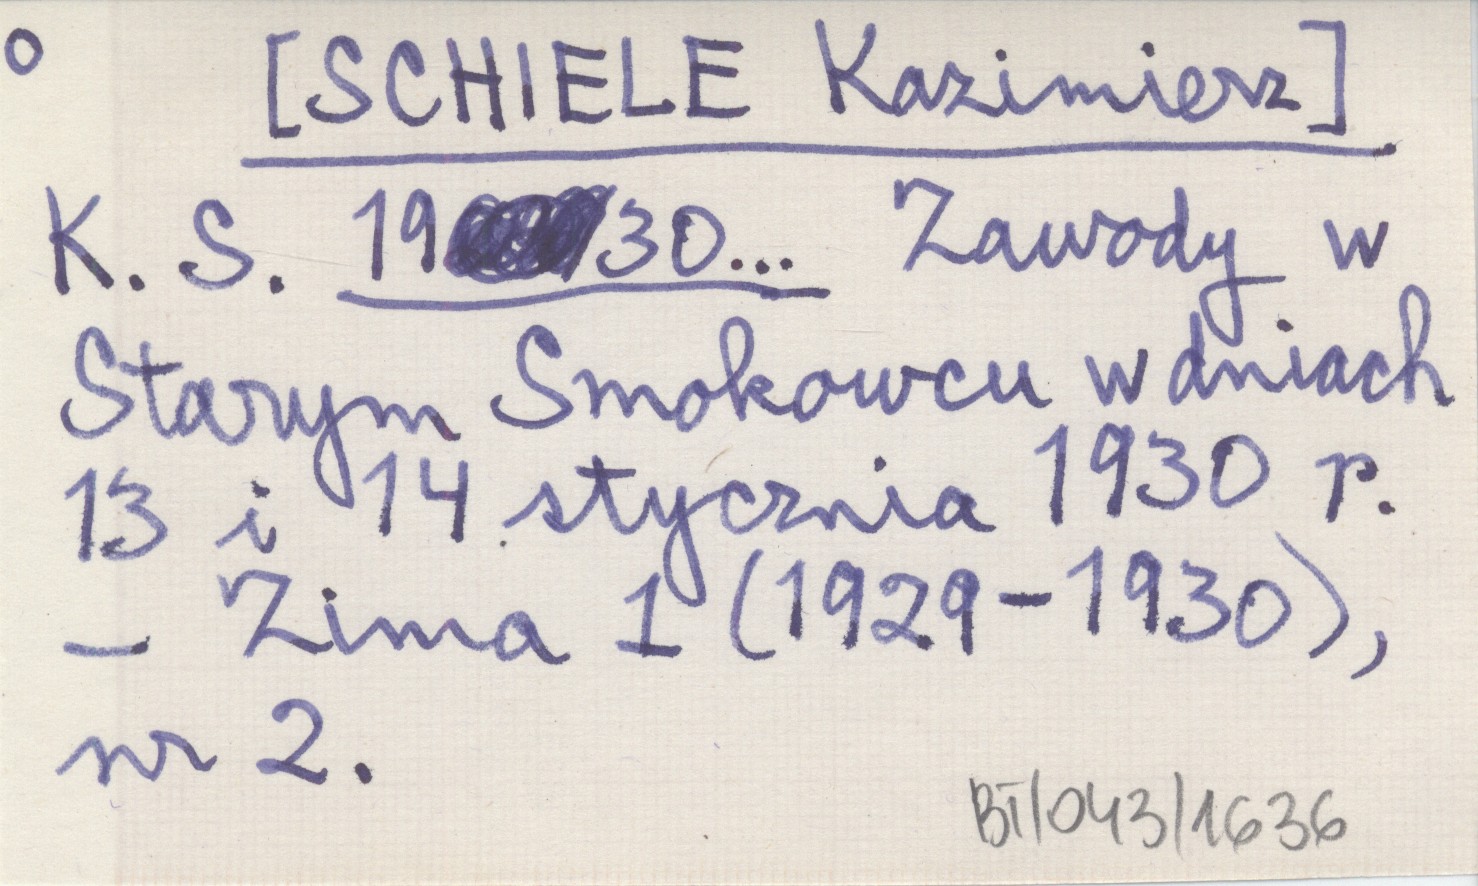 o [SCHIELE Kazimierz]
K. S. 1930... Zawody w
Starym Smokowcu w dniach
13 i 14 stycznia 1930 r.
– Zima 1 (1929–1930),
nr 2.
BT/043/1636